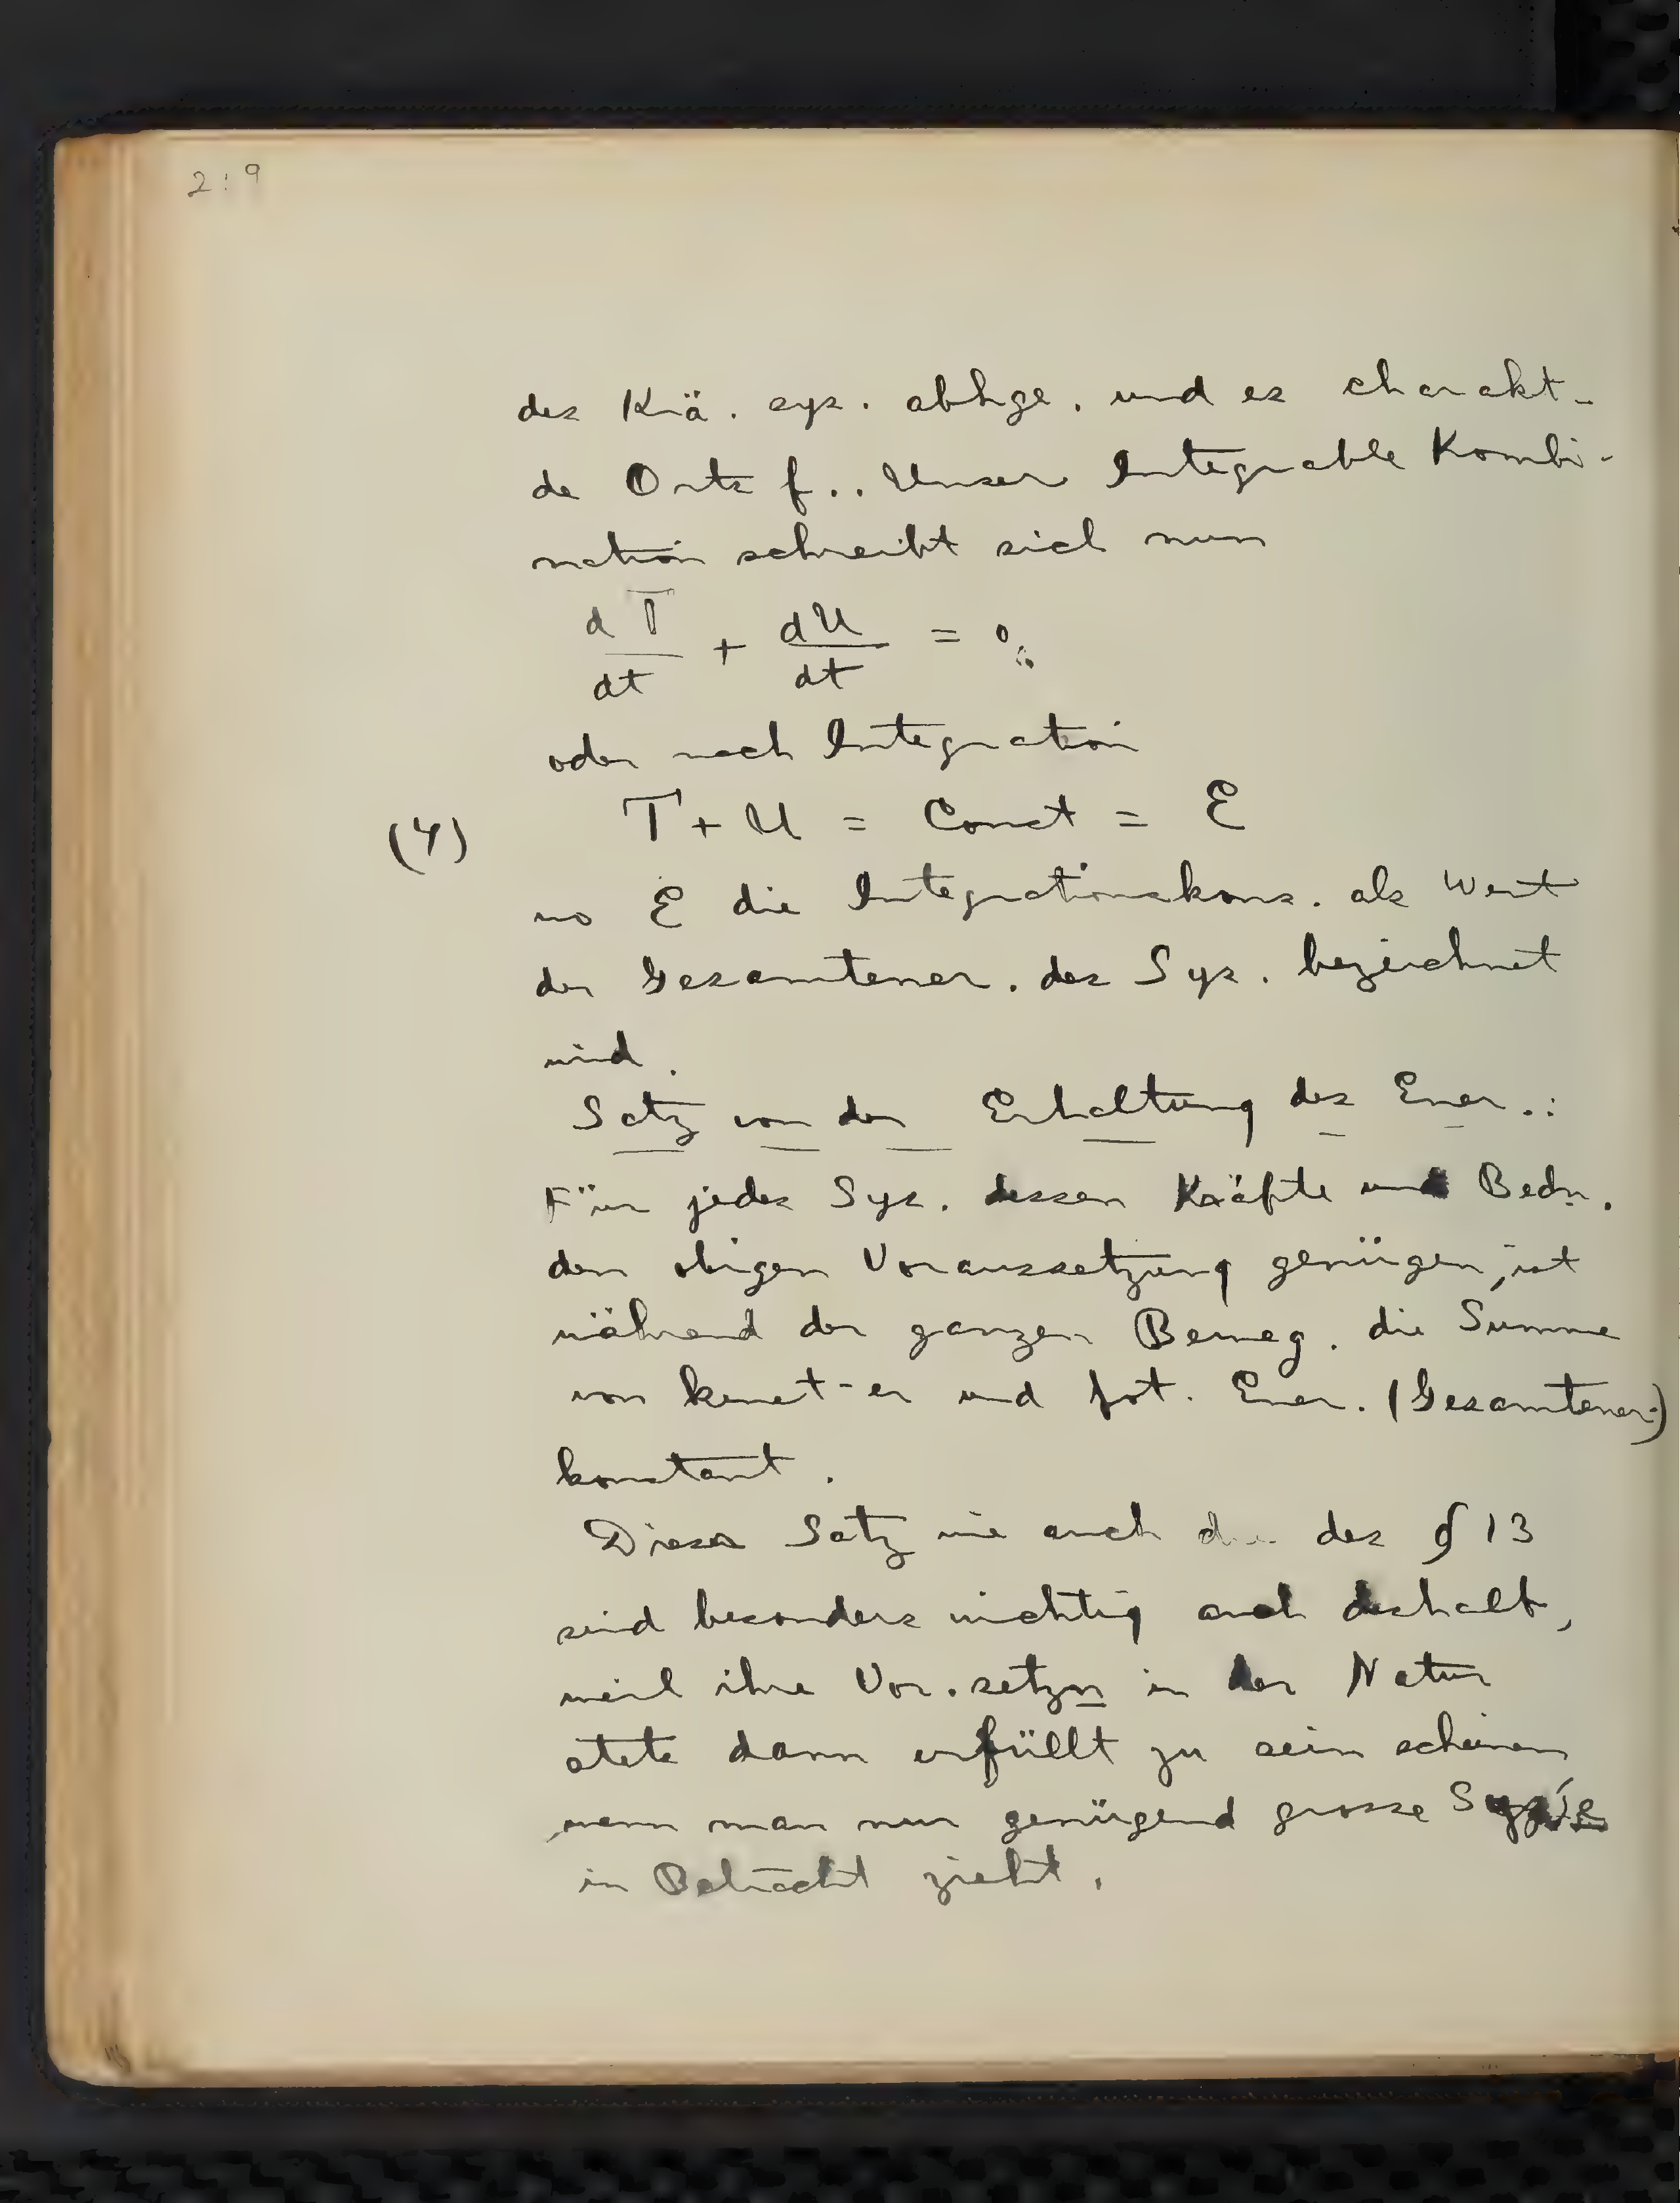 2:9
des Krä. sys. abhge. und es charakt-
de Orts f.. Unser Integrable Kombi-
nation schreibt sich nun
dT/dt + dU/dt = 0
oder nach Integration
(4) T + U = Const = E
wo E die Integrationskons. als Wert
der Gesamtener. des Sys. bezeichnet
wird.
Satz von der Erhaltung der Ener.:
Für jedes Sys. dessen Kräfte und Bedn.
den obigen Voraussetzung genügen, ist
während der ganzen Beweg. die Summe
von kinet-er und pot. Ener. (Gesamtener.)
konstant.
Dieser Satz wie auch des § 13
sind besonders wichtig auch deshalb,
weil ihre Vor.setzn in der Natur
stets dann erfüllt zu sein scheinen
wenn man nur genügend grosse
in Betracht zieht.